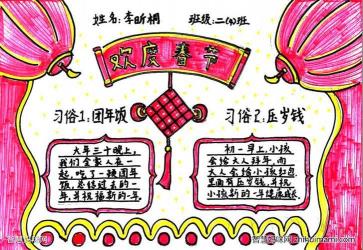 姓名:李昕桐 班级:二(4)班
欢度春节
习俗1:团年饭 习俗2:压岁钱
大年三十晚上,
我们全家人在一
起,吃了一顿团年
饭,总结过去的一
年,并祝福新的一年.
初一早上,小孩
会给大人拜年,而
大人会给小孩红包
里面有压岁钱,并祝
小孩新的一年健康成长.